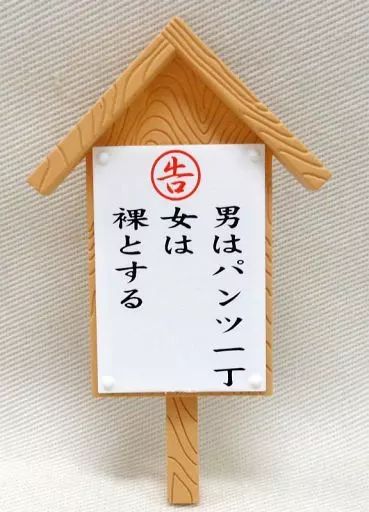 告
男はパンツ一丁
女は
裸とする